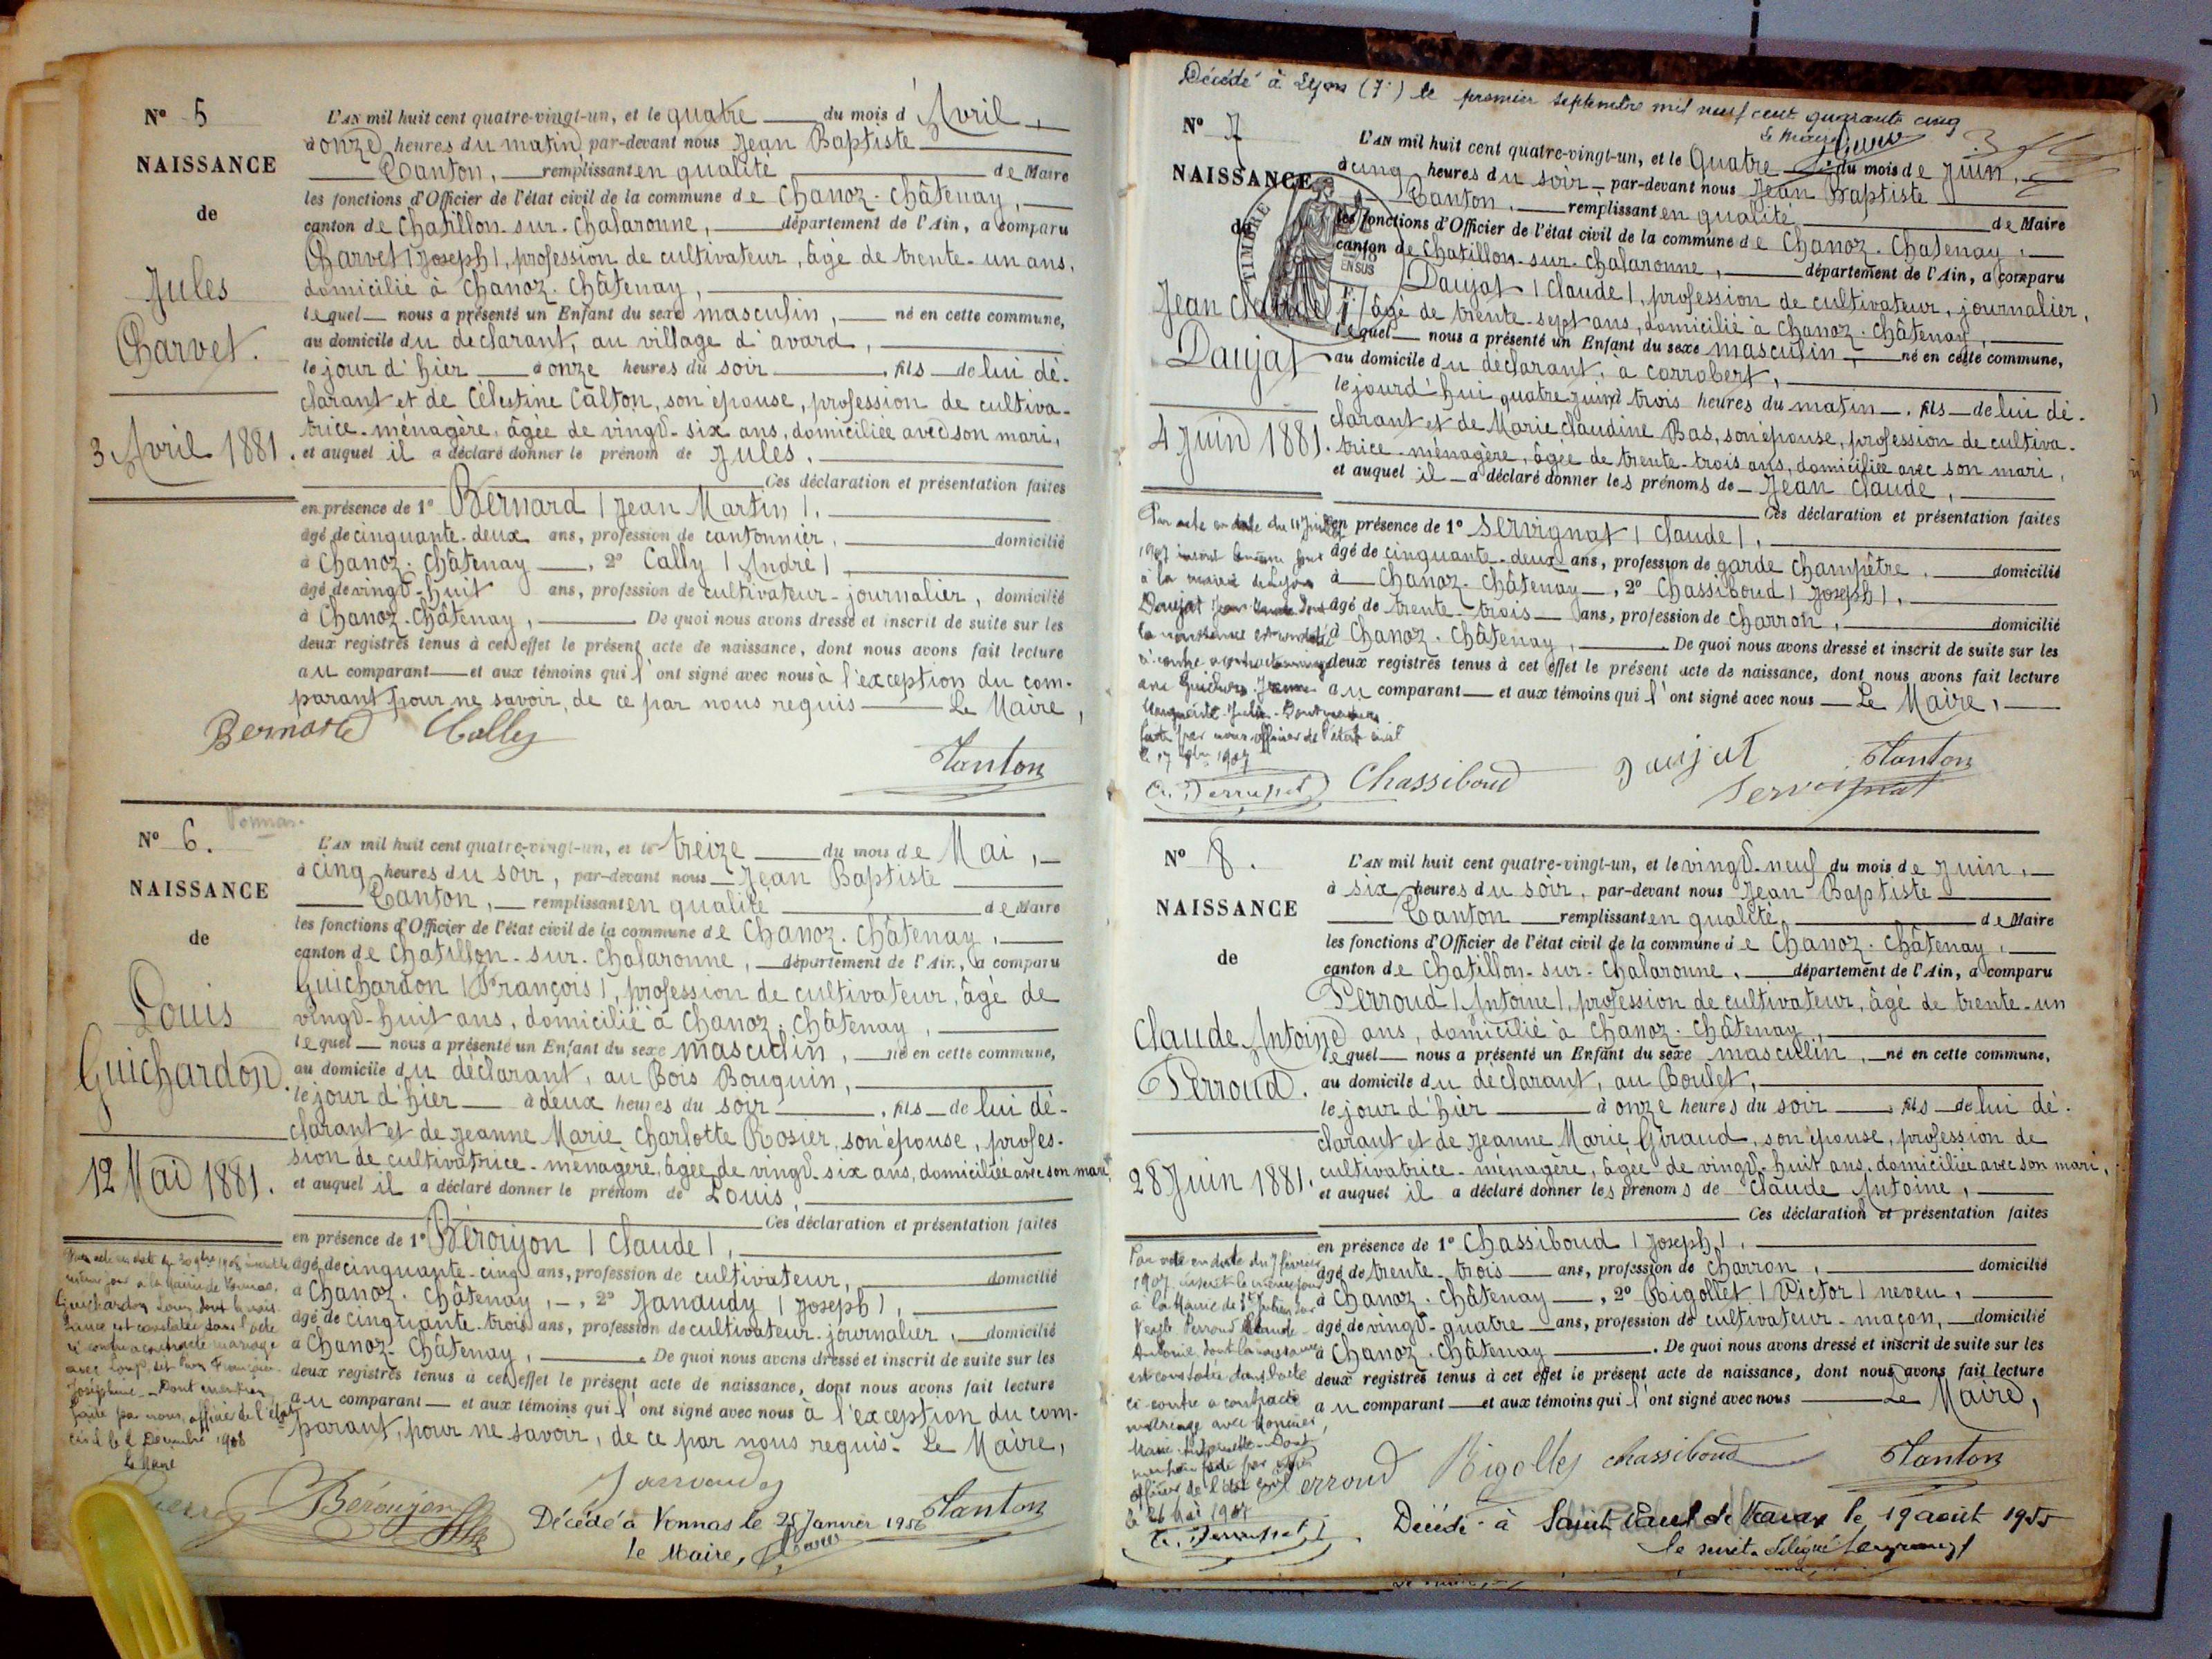 N° 5
NAISSANCE
de
Jules
Charvet.
3 Avril 1881.
L'AN mil huit cent quatre-vingt-un, et le quatre du mois d'Avril,
à onze heures du matin, par-devant nous Jean Baptiste
Canton, remplissant en qualité de Maire
les fonctions d'Officier de l'état civil de la commune de Chanoz-Châtenay,
canton de Chatillon-sur-Chalaronne, département de l'Ain, a comparu
Charvet (Joseph), profession de cultivateur, âgé de trente-un ans,
domicilié à Chanoz-Châtenay,
lequel nous a présenté un Enfant du sexe masculin, né en cette commune,
au domicile du déclarant, au village d'avard,
le jour d'hier à onze heures du soir, fils de lui dé-
clarant et de Célestine Calton, son épouse, profession de cultiva-
trice-ménagère, âgée de vingt-six ans, domiciliée avec son mari,
et auquel il a déclaré donner le prénom de Jules,
Ces déclaration et présentation faites
en présence de 1° Bernard (Jean Martin),
âgé de cinquante-deux ans, profession de cantonnier, domicilié
à Chanoz-Châtenay, 2° Cally (André)
âgé de vingt-huit ans, profession de cultivateur-journalier, domicilié
à Chanoz-Châtenay, De quoi nous avons dressé et inscrit de suite sur les
deux registres tenus à cet effet le présent acte de naissance, dont nous avons fait lecture
au comparant et aux témoins qui l'ont signé avec nous à l'exception du com-
parant pour ne savoir, de ce par nous requis Le Maire,
Bernard Cally
Canton
N° 6.
Vonnas.
NAISSANCE
de
Louis
Guichardon.
12 Mai 1881.
L'AN mil huit cent quatre-vingt-un, et le treize du mois de Mai,
à cinq heures du soir, par-devant nous Jean Baptiste
Canton, remplissant en qualité de Maire
les fonctions d'Officier de l'état civil de la commune de Chanoz-Châtenay,
canton de Chatillon-sur-Chalaronne, département de l'Ain, a comparu
Guichardon (François), profession de cultivateur, âgé de
vingt-huit ans, domicilié à Chanoz-Châtenay,
lequel nous a présenté un Enfant du sexe masculin, né en cette commune,
au domicile du déclarant, au Bois Bouquin,
le jour d'hier à deux heures du soir, fils de lui dé-
clarant et de Jeanne Marie Charlotte Rosier, son épouse, profes-
sion de cultivatrice-ménagère, âgée de vingt-six ans, domiciliée avec son mari,
et auquel il a déclaré donner le prénom de Louis,
Ces déclaration et présentation faites
en présence de 1° Béroujon (Claude),
âgé de cinquante-cinq ans, profession de cultivateur, domicilié
à Chanoz-Châtenay, 2° Janaudy (Joseph),
âgé de cinquante-trois ans, profession de cultivateur-journalier, domicilié
à Chanoz-Châtenay, De quoi nous avons dressé et inscrit de suite sur les
deux registres tenus à cet effet le présent acte de naissance, dont nous avons fait lecture
au comparant et aux témoins qui l'ont signé avec nous à l'exception du com-
parant, pour ne savoir, de ce par nous requis. Le Maire,
Par acte en date du 30 9bre 1908, inscrit le
même jour à la Mairie de Vonnas,
Guichardon Louis dont la nais-
sance est constatée dans l'acte
ci contre a contracté mariage
avec
Joséphine. Dont mention
faite par nous, officier de l'état
civil le 2 Décembre 1908
Le Maire
Béroujon Janaudy
Canton
Décédé à Vonnas le 25 Janvier 1956
le Maire,
Décédé à Lyon (7e) le premier septembre mil neuf cent quarante cinq
Le Maire
N° 7
NAISSANCE
de
TIMBRE
EN SUS
Jean Claude
Daujat
4 Juin 1881.
L'AN mil huit cent quatre-vingt-un, et le Quatre du mois de Juin,
à cinq heures du soir par-devant nous Jean Baptiste
Canton, remplissant en qualité de Maire
les fonctions d'Officier de l'état civil de la commune de Chanoz-Chatenay,
canton de Chatillon-sur-Chalaronne, département de l'Ain, a comparu
Daujat (Claude), profession de cultivateur, journalier,
âgé de trente-sept ans, domicilié à Chanoz-Châtenay,
lequel nous a présenté un Enfant du sexe masculin, né en cette commune,
au domicile du déclarant, à Corrobert,
le jourd'hui quatre juin à trois heures du matin, fils de lui dé-
clarant et de Marie Claudine Bas, son épouse, profession de cultiva-
trice-ménagère, âgée de trente-trois ans, domiciliée avec son mari,
et auquel il a déclaré donner les prénoms de Jean Claude,
Ces déclaration et présentation faites
en présence de 1° Servignat (Claude),
âgé de cinquante-deux ans, profession de garde champêtre, domicilié
à Chanoz-Châtenay, 2° Chassiboud (Joseph),
âgé de trente-trois ans, profession de charron, domicilié
à Chanoz-Châtenay, De quoi nous avons dressé et inscrit de suite sur les
deux registres tenus à cet effet le présent acte de naissance, dont nous avons fait lecture
au comparant et aux témoins qui l'ont signé avec nous Le Maire,
Par acte en date du
1907 inscrit le même jour
à la mairie de Lyon
Daujat Jean Claude dont
la naissance est constatée
ci-contre a contracté mariage
avec Jeanne
Marguerite Dont mention
faite par nous officier de l'état civil
le 17 1907
Chassiboud Daujat Canton
Servignat
N° 8.
NAISSANCE
de
Claude Antoine
Perroud.
28 Juin 1881.
L'AN mil huit cent quatre-vingt-un, et le vingt-neuf du mois de Juin,
à six heures du soir, par-devant nous Jean Baptiste
Canton remplissant en qualité de Maire
les fonctions d'Officier de l'état civil de la commune de Chanoz-Châtenay,
canton de Chatillon-sur-Chalaronne, département de l'Ain, a comparu
Perroud (Antoine), profession de cultivateur, âgé de trente-un
ans, domicilié à Chanoz-Châtenay,
lequel nous a présenté un Enfant du sexe masculin, né en cette commune,
au domicile du déclarant, au Boulet,
le jour d'hier à onze heures du soir, fils de lui dé-
clarant et de Jeanne Marie Giraud, son épouse, profession de
cultivatrice-ménagère, âgée de vingt-huit ans, domiciliée avec son mari,
et auquel il a déclaré donner les prénoms de Claude Antoine,
Ces déclaration et présentation faites
en présence de 1° Chassiboud (Joseph),
âgé de trente-trois ans, profession de charron, domicilié
à Chanoz-Châtenay, 2° Rigollet (Victor) neveu,
âgé de vingt-quatre ans, profession de cultivateur-maçon, domicilié
à Chanoz-Châtenay. De quoi nous avons dressé et inscrit de suite sur les
deux registres tenus à cet effet le présent acte de naissance, dont nous avons fait lecture
au comparant et aux témoins qui l'ont signé avec nous Le Maire,
Par acte en date du 7 février
1907 inscrit le même jour
à la Mairie de St Julien sur
Veyle Perroud Claude
Antoine dont la naissance
est constatée dans l'acte
ci-contre a contracté
mariage avec
Marie Dont
mention faite par
officier de l'état civil
le 26 Mai 1907
Perroud Rigollet Chassiboud Canton
Décédé à Saint Paul de Varax le 19 août 1955